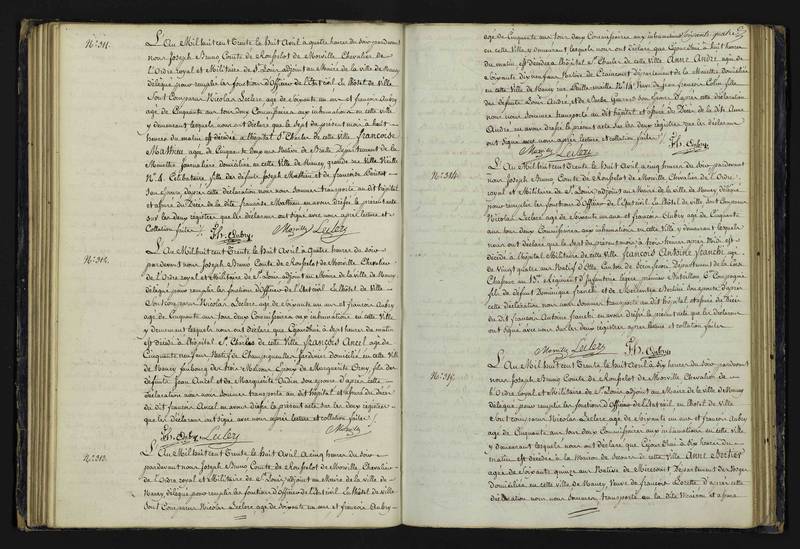 N.° 311.
L'An Mil huit cent Trente le huit Avril à quatre heures du soir pardevant
nous Joseph Bruno Comte de Rouyelot de Morville, Chevalier de
l'Ordre royal et Militaire de S.t Louis adjoint au Maire de la ville de Nancy
délégué pour remplir les fonctions d'Officier de l'Etat civil. En l'hôtel de Ville
sont Comparus Nicolas Leclerc âgé de soixante un ans et françois Aubry
âgé de Cinquante un tous deux Commissaires aux inhumations en cette ville
y demeurant lesquels nous ont déclaré que le sept du présent mois à huit
heures du matin est décédée à l'hôpital S.t Charles de cette Ville françoise
Mathieu
N.° 4. Célibataire, fille des défunts Joseph Mathieu et de françoise
après cette déclaration nous nous sommes transporté au dit hôpital
et assuré du Décès de la dite françoise Mathieu en avons dressé le présent acte
sur les deux registres que les déclarants ont signé avec nous après lecture et
Collation faite
fs. Aubry Morville Leclerc
N.° 312.
L'An Mil huit cent Trente le huit Avril à quatre heures du soir
pardevant nous Joseph Bruno Comte de Rouyelot de Morville, Chevalier
de l'Ordre royal et Militaire de S.t Louis, adjoint au Maire de la ville de Nancy
délégué pour remplir les fonctions d'Officier de l'Etat civil. En l'hôtel de Ville
sont comparus Nicolas Leclerc âgé de soixante un ans et françois Aubry
âgé de Cinquante un tous deux Commissaires aux inhumations en cette Ville
y demeurant lesquels nous ont déclaré que Cejourd'hui à sept heures du matin
est décédé à l'hôpital S.t Charles de cette Ville françois Ancel âgé de
Cinquante
de Nancy faubourg des trois Maisons Epoux de Marguerite fils des
défunts Jean Ancel et de Marguerite après cette
déclaration nous nous sommes transporté au dit hôpital et assuré du décès
du dit françois Ancel en avons dressé le présent acte sur les deux registres
que les déclarants ont signé avec nous après lecture et collation faite
fs. Aubry Leclerc Morville
N.° 313.
L'An Mil huit cent Trente le huit Avril à cinq heures du soir
pardevant nous Joseph Bruno Comte de Rouyelot de Morville Chevalier
de l'Ordre royal et Militaire de S.t Louis, adjoint au Maire de la ville de
Nancy, délégué pour remplir les fonctions d'Officier de l'Etat civil. En l'hôtel de ville
sont Comparus Nicolas Leclerc âgé de soixante un ans et françois Aubry
âgé de Cinquante un tous deux Commissaires aux inhumations
en cette Ville y demeurant lesquels nous ont déclaré que Cejourd'hui à huit heures
du matin est décédée à l'hôpital S.t Charles de cette Ville Anne André, âgée de
soixante dix neuf ans Département de la Meurthe domiciliée
en cette Ville de Nancy Veuve de Jean françois Colin, fille
des défunts Louis André, et de après cette déclaration
nous nous sommes transporté au dit hôpital et assuré du Décès de la dite Anne
André en avons dressé le présent acte sur les deux registres que les déclarants
ont signé avec nous après lecture et collation faite
Morville Leclerc fs. Aubry
N.° 314.
L'An Mil huit cent Trente le huit Avril à cinq heures du soir pardevant
nous Joseph Bruno Comte de Rouyelot de Morville Chevalier de l'Ordre
royal et Militaire de S.t Louis adjoint au Maire de la ville de Nancy délégué
pour remplir les fonctions d'Officier de l'Etat civil. En l'hôtel de Ville, sont Comparus
Nicolas Leclerc âgé de soixante un ans et françois Aubry âgé de Cinquante
un tous deux Commissaires aux inhumations en cette Ville y demeurant lesquels
nous ont déclaré que le sept du présent mois à trois heures après Midi est
décédé à l'hôpital Militaire de cette Ville françois Antoine franchi, âgé
de Vingt quatre ans Département de la Corse
Chasseur au 15.e Régiment d'Infanterie légère, premier Bataillon 6.e Compagnie
fils de défunt Dominique franchi et de après
cette déclaration nous nous sommes transporté au dit hôpital et assuré du Décès
du dit françois Antoine franchi en avons dressé le présent acte que les déclarants
ont signé avec nous sur les deux registres après lecture et collation faite
Morville Leclerc fs. Aubry
N.° 315.
L'An Mil huit cent Trente le huit Avril à six heures du soir pardevant
nous Joseph Bruno Comte de Rouyelot de Morville Chevalier de
l'Ordre royal et Militaire de S.t Louis adjoint au Maire de la ville de Nancy
délégué pour remplir les fonctions d'Officier de l'Etat civil. En l'hôtel de Ville
sont comparus Nicolas Leclerc âgé de soixante un ans et françois Aubry
âgé de Cinquante un tous deux Commissaires aux inhumations en cette ville
y demeurant lesquels nous ont déclaré que Cejourd'hui à dix heures du
matin est décédée à la Maison de Secours de cette Ville Anne
âgée de soixante quinze ans Native de Mirecourt Département des Vosges
domiciliée en cette ville de Nancy, Veuve de françois après cette
déclaration nous nous sommes transporté en la dite Maison et assuré